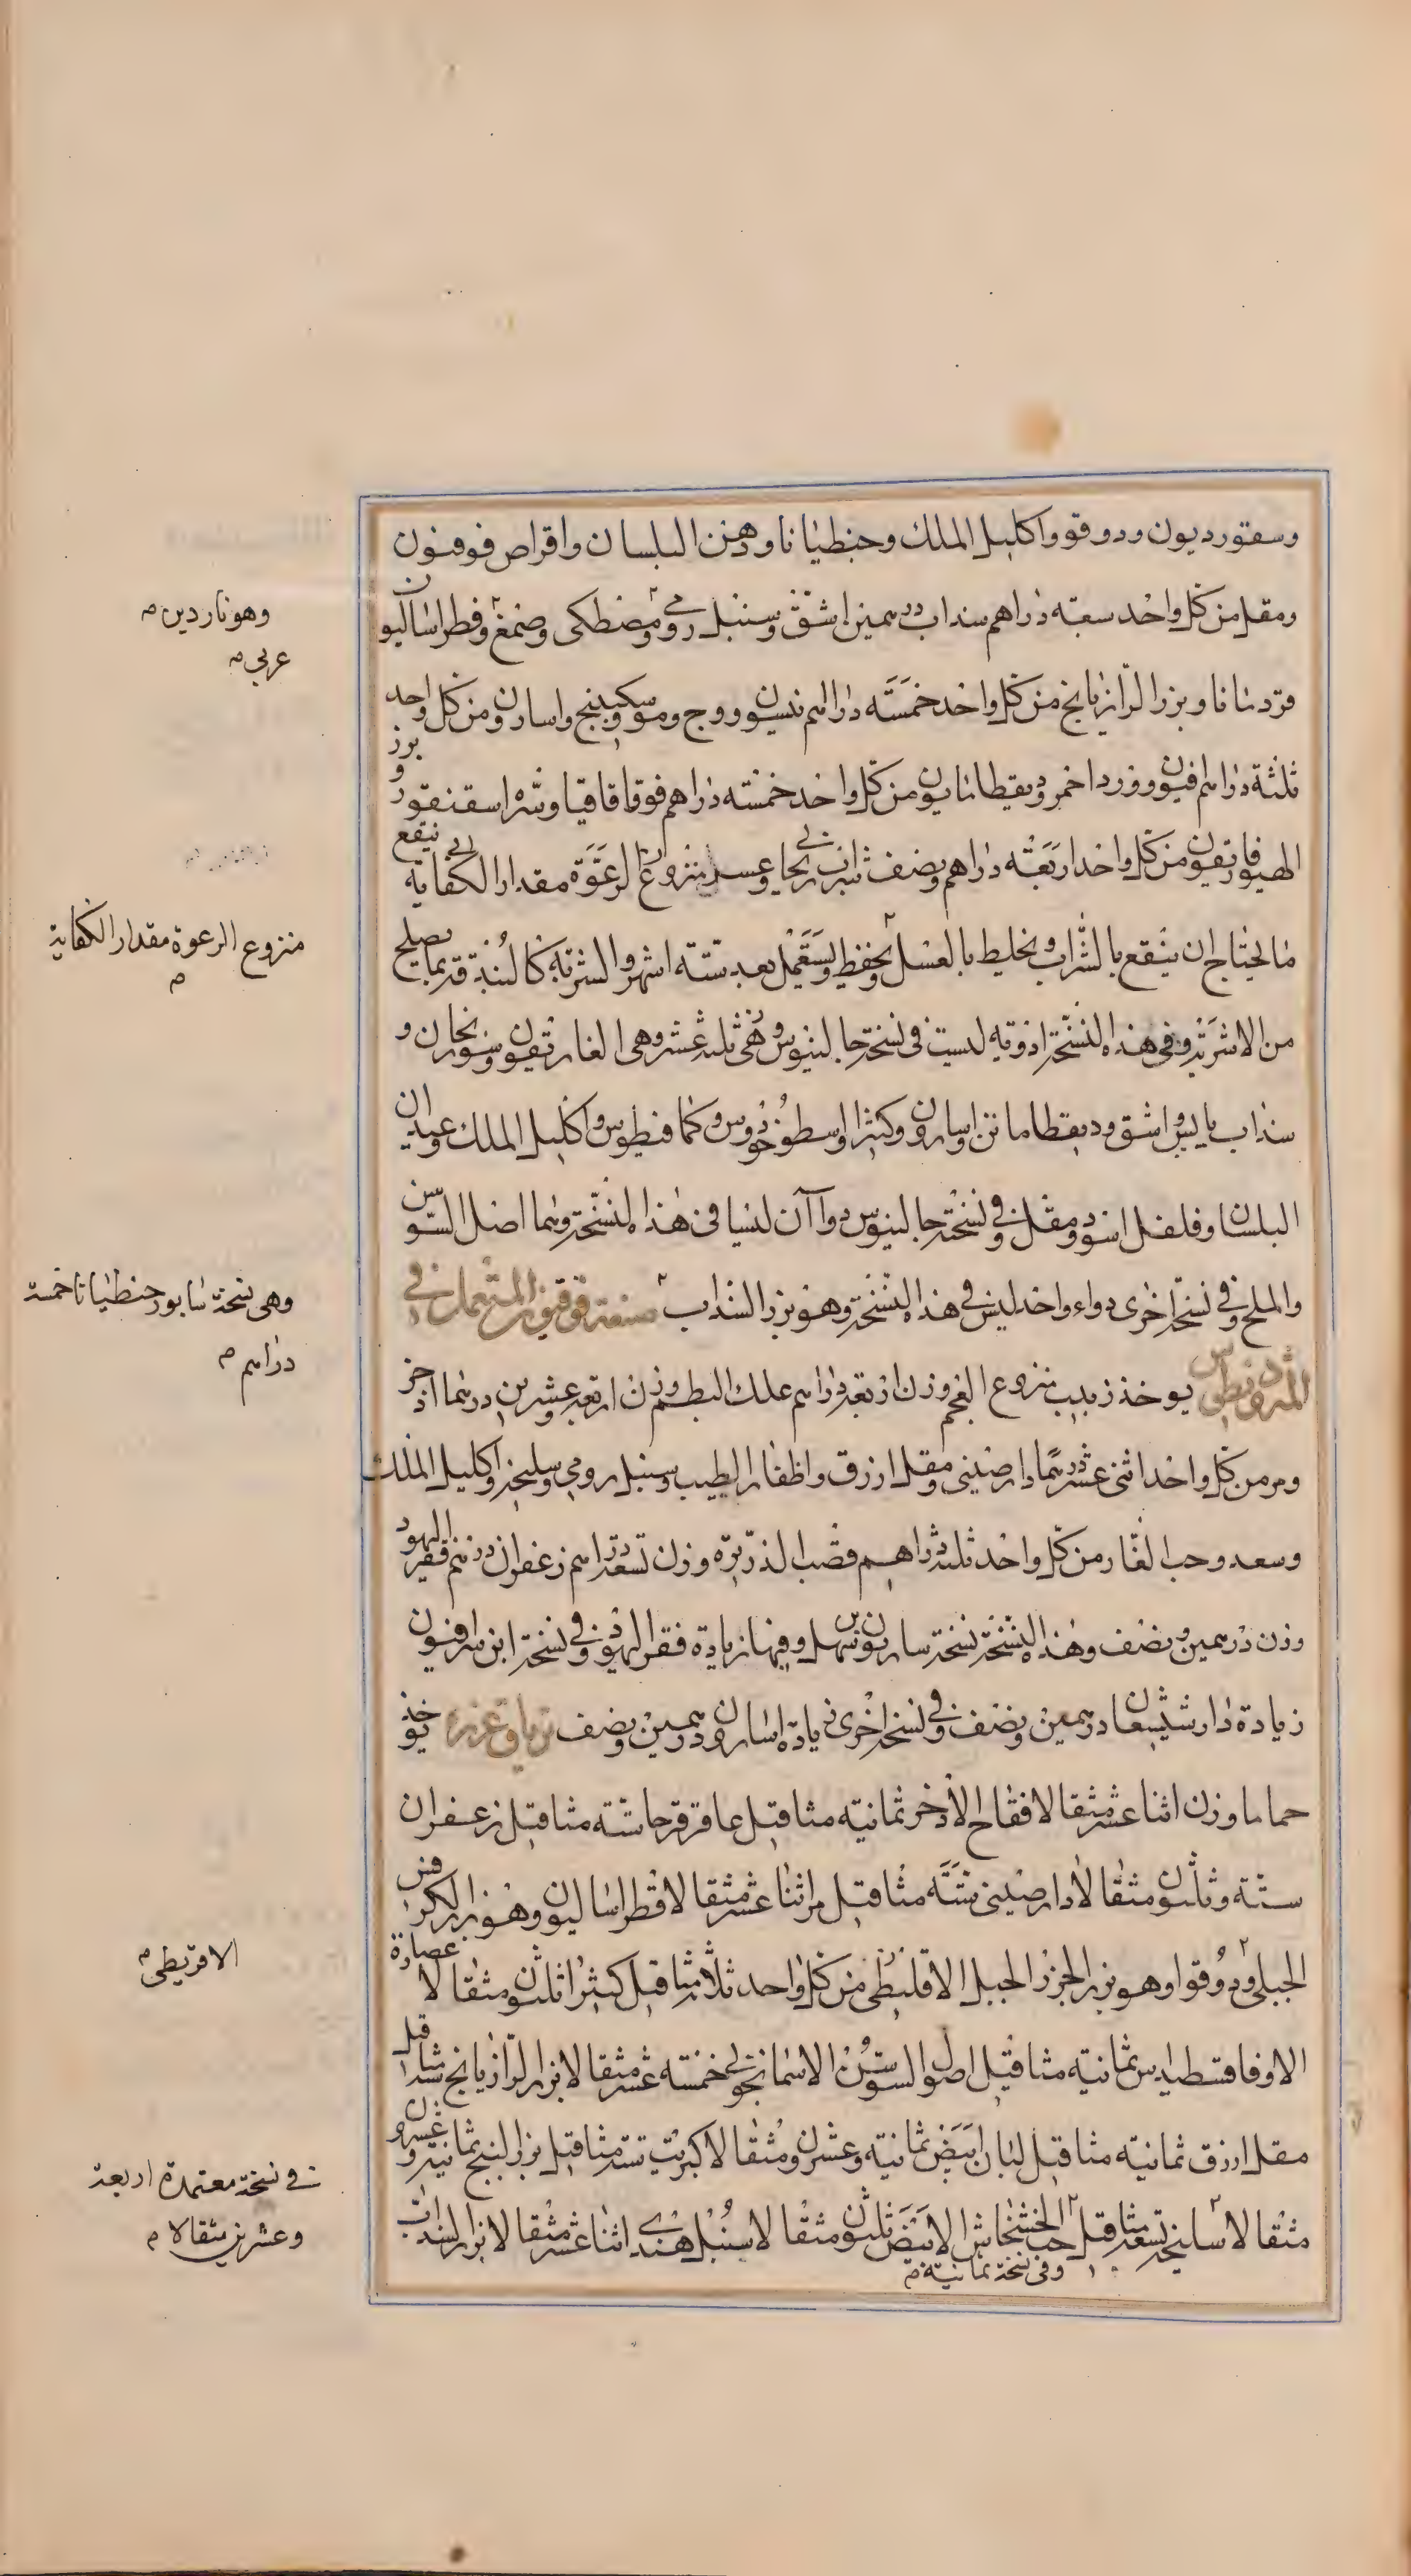 وسقورديون ودوقو واكليل الملك وجنطيانا ودهن البلسان واقراص فوفنون
ومقل من كل واحد سبعة دراهم سنداب درهمين اشق وسنبل رومى ومضطكى وصمغ وفطراساليون
قردمانا وبزر الرازيانج من كل واحد خمسة دراهم نيسون ووج ومو وسكبينج واسارون من كل واحد
ثلثة دراهم افيون وورد احمر وديقطاماتايون من كل واحد خمسة دراهم فو واقاقيا وسره اسقنقور وبرز
الهيوفاريقون من كل واحد اربعة دراهم ونصف شراب ريحاني وعسل منزوع الرغوة مقدار الكفاية ينقع
ما يحتاج ان ينقع بالشراب ويخليط بالعسل ويحفظ ويستعمل بعد ستة اشهر والشربة كالبندقة بما يصلح
من الاشربة وفي هذه النسخة ادوية ليست في نسخة جالينوس وهي ثلثة عشر وهي الغاريقون وسورنجان و
سنداب يابس واشق وديقطاماتن واسارون وكثيرا واسطوخودوس وكمافيطوس واكليل الملك وعيدان
البلسان وفلفل اسود ومقل وفي نسخة جالينوس دواآن ليسا في هذه النسخة وهما اصل السوسن
والملح وفي نسخة اخرى دواء واحد ليس في هذه النسخة وهو بزر السنداب صنعة قوقيون المستعمل في
المثروذيطوس يوخذ زبيب منزوع العجم وزن اربعة دراهم علك البطم وزن اربعة وعشرين درهما اذخر
ومر من كل واحد اثنى عشر درهما دارصيني ومقل ازرق واظفار الطيب وسنبل رومي وسليخة واكليل الملك
وسعد وحب الغار من كل واحد ثلثة دراهم قصب الذريرة وزن تسعة دراهم زعفران درهم قفر اليهود
وزن درهمين ونصف وهذه النسخة نسخة سابور بن سهل وفيها زيادة فقر اليهود وفي نسخة ابن سرافيون
زيادة دارشيشعان درهمين ونصف وفي نسخة اخرى زيادة اسارون درهمين ونصف ترياق عزرة يوخذ
حماما وزن اثنا عشر مثقالا فقاح الاذخر ثمانية مثاقيل عاقرقرحا ستة مثاقيل زعفران
ستة وثلثون مثقالا دارصيني ستة مثاقيل مر اثنا عشر مثقالا فطراساليون وهو بزر الكرفس
الجبلى ودوقوا وهو بزر الجزر الجبلى الاقليطى من كل واحد ثلاث مثاقيل كثيرا ثلثون مثقالا عصارة
الاوفاقسطيداس ثمانية مثاقيل اصول السوسن الاسمانجوني خمسة عشر مثقالا بزر الرازيانج ستة مثاقيل
مقل ازرق ثمانية مثاقيل لبان ابيض ثمانية وعشرون مثقالا كبريت ستة مثاقيل بزر البنج ثمانية وعشرون
مثقالا سليخة تسعة مثاقيل حب الخشخاش الابيض ثلثون مثقالا سنبل هندي اثنا عشر مثقالا بزر السنداب
وفى نسخة ثمانية م
وهو ناردين م
عربي م
منزوع الرعوة مقدار الكفاية م
وهى نسخة سابور جنطيانا خمسة
دراهم م
الاقريطى م
فى نسخة معتمدة اربعة
وعشرين مثقالا م